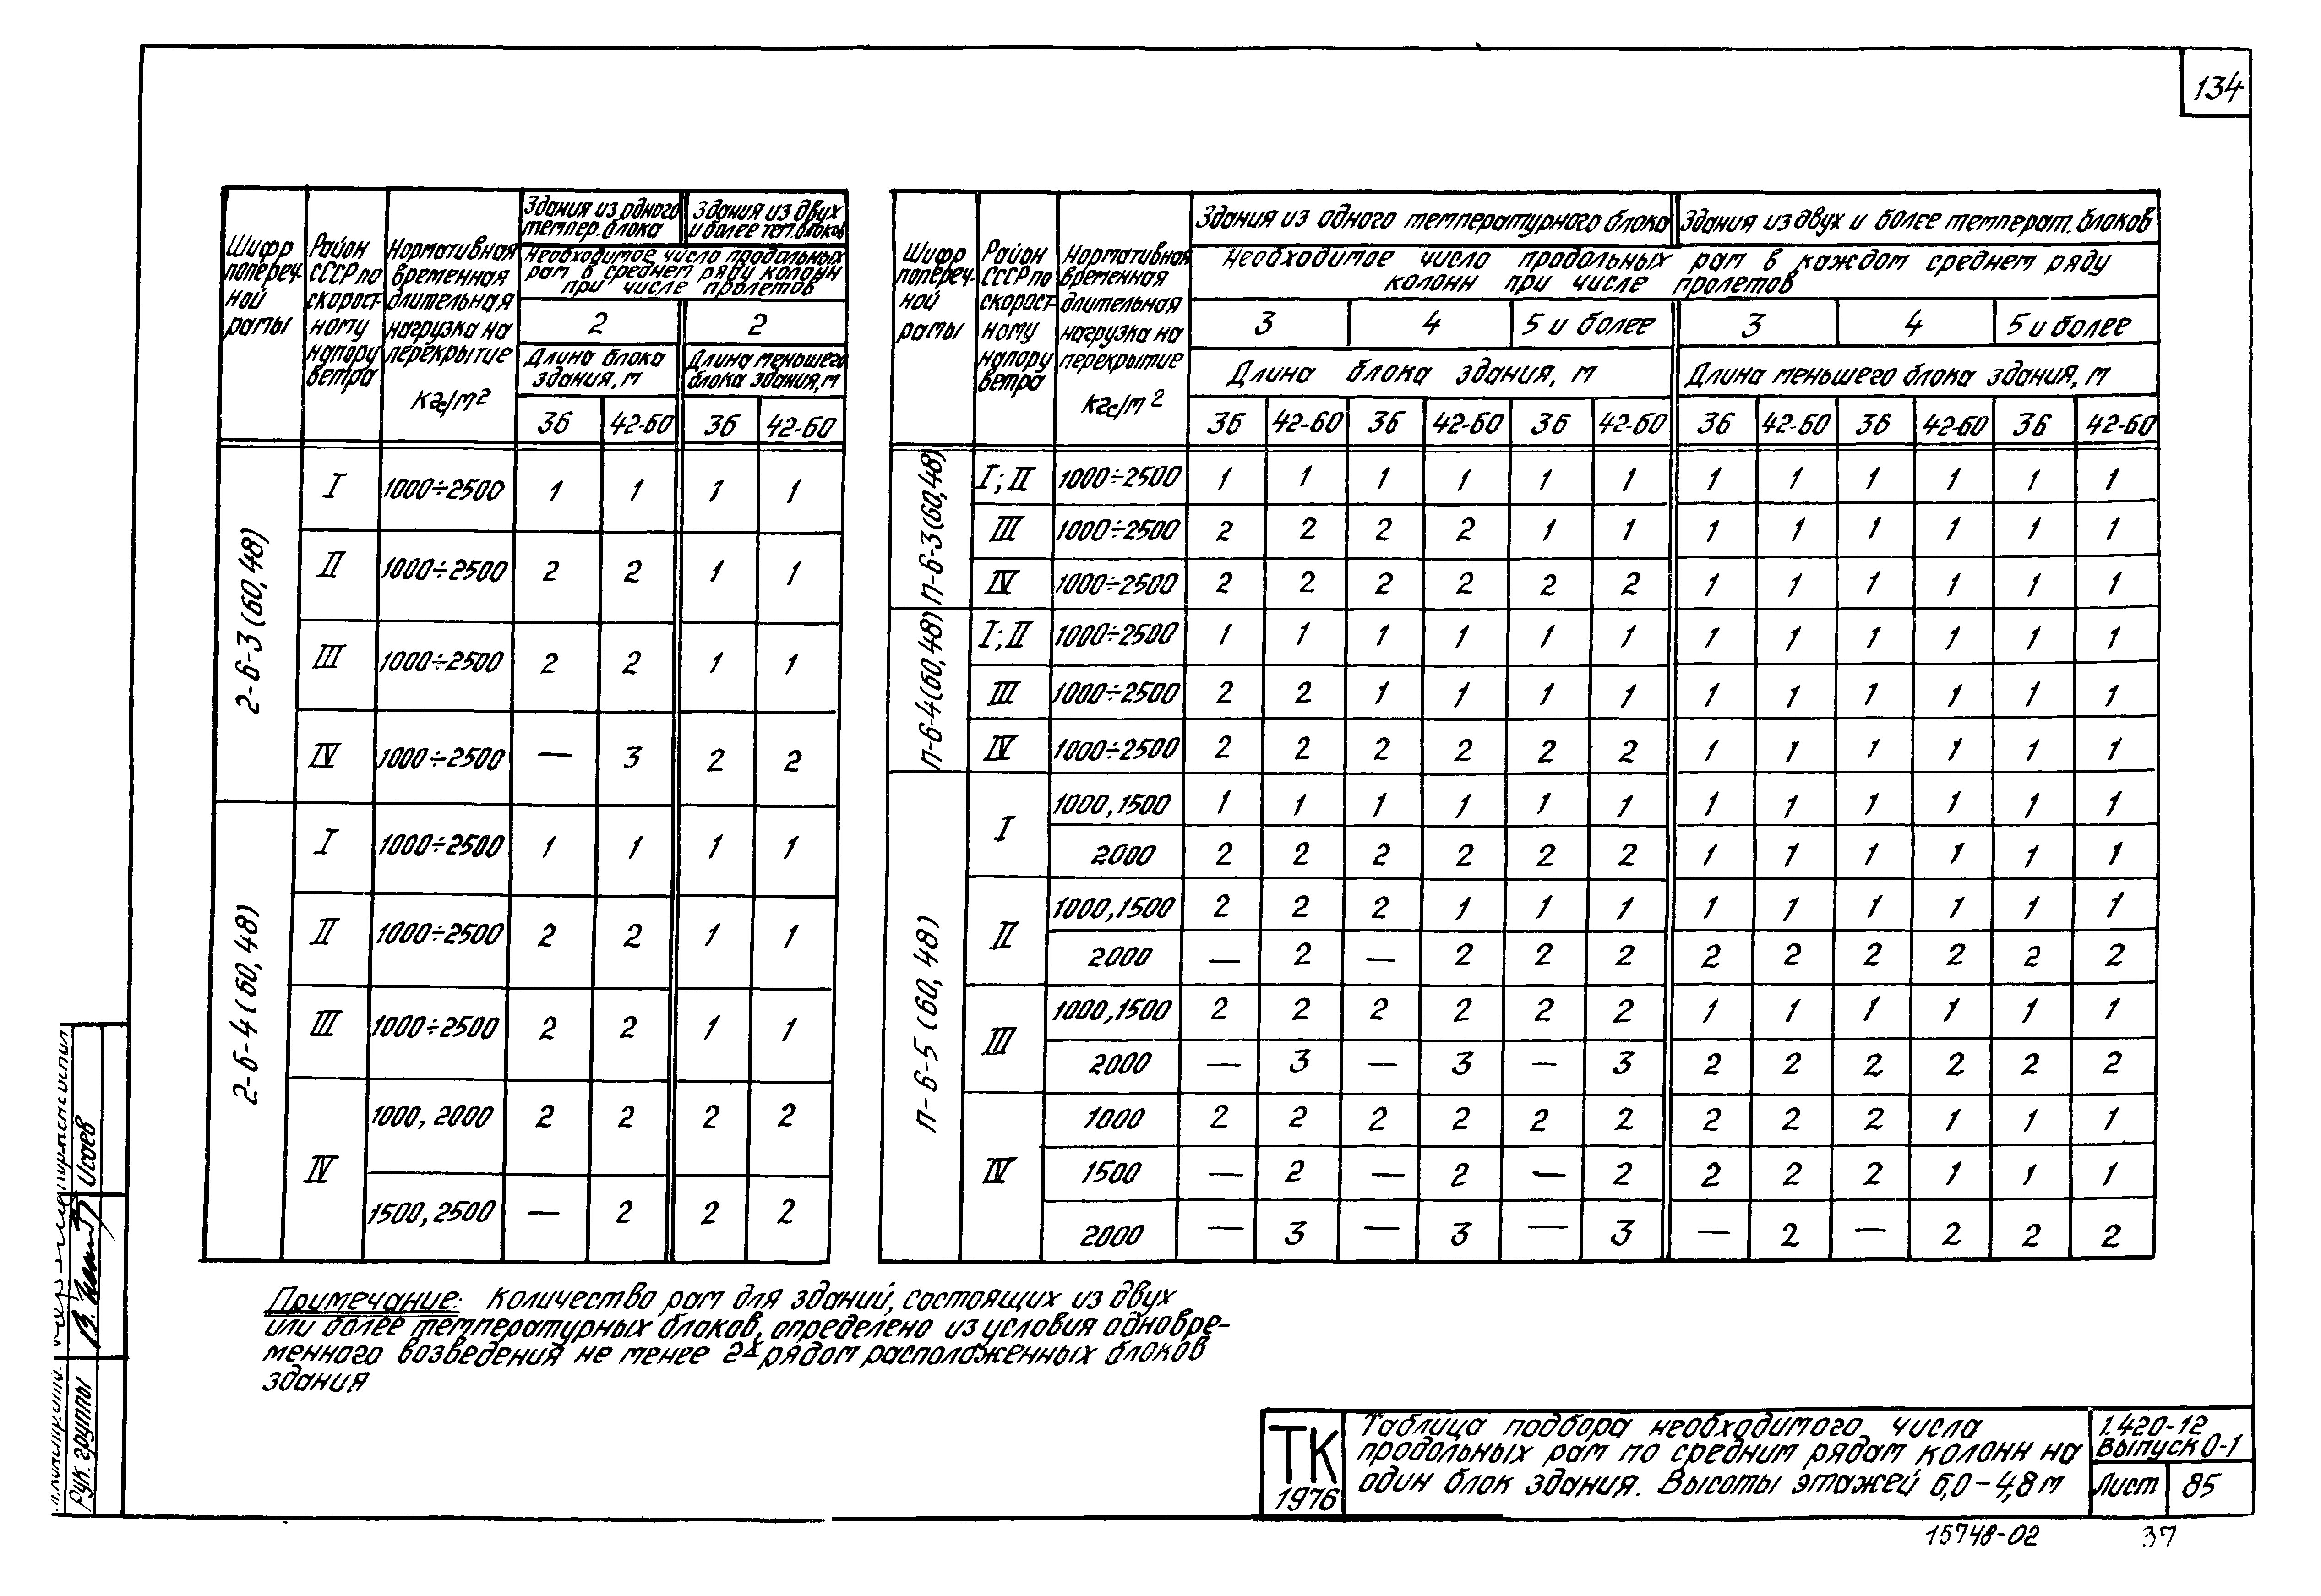 134
Шифр попереч-ной рамы | Район СССР по скорост-ному напору ветра | Нормативная временная длительная нагрузка на перекрытие кгс/м² | Здания из одного темпер. блока | Здания из двух и более теп. блоков
Необходимое число продольных рам в среднем ряду колонн при числе пролетов
2 | 2
Длина блока здания, м | Длина меньшего блока здания, м
36 | 42-60 | 36 | 42-60
2-6-3 (60,48) | I | 1000÷2500 | 1 | 1 | 1 | 1
II | 1000÷2500 | 2 | 2 | 1 | 1
III | 1000÷2500 | 2 | 2 | 1 | 1
IV | 1000÷2500 | — | 3 | 2 | 2
2-6-4 (60,48) | I | 1000÷2500 | 1 | 1 | 1 | 1
II | 1000÷2500 | 2 | 2 | 1 | 1
III | 1000÷2500 | 2 | 2 | 1 | 1
IV | 1000, 2000 | 2 | 2 | 2 | 2
1500, 2500 | — | 2 | 2 | 2
Шифр попереч-ной рамы | Район СССР по скорост-ному напору ветра | Нормативная временная длительная нагрузка на перекрытие кгс/м² | Здания из одного температурного блока | Здания из двух и более температ. блоков
Необходимое число продольных рам в каждом среднем ряду
колонн при числе пролетов
3 | 4 | 5 и более | 3 | 4 | 5 и более
Длина блока здания, м | Длина меньшего блока здания, м
36 | 42-60 | 36 | 42-60 | 36 | 42-60 | 36 | 42-60 | 36 | 42-60 | 36 | 42-60
п-6-3 (60,48) | I; II | 1000÷2500 | 1 | 1 | 1 | 1 | 1 | 1 | 1 | 1 | 1 | 1 | 1 | 1
III | 1000÷2500 | 2 | 2 | 2 | 2 | 1 | 1 | 1 | 1 | 1 | 1 | 1 | 1
IV | 1000÷2500 | 2 | 2 | 2 | 2 | 2 | 2 | 1 | 1 | 1 | 1 | 1 | 1
п-6-4 (60,48) | I; II | 1000÷2500 | 1 | 1 | 1 | 1 | 1 | 1 | 1 | 1 | 1 | 1 | 1 | 1
III | 1000÷2500 | 2 | 2 | 1 | 1 | 1 | 1 | 1 | 1 | 1 | 1 | 1 | 1
IV | 1000÷2500 | 2 | 2 | 2 | 2 | 2 | 2 | 1 | 1 | 1 | 1 | 1 | 1
п-6-5 (60,48) | I | 1000, 1500 | 1 | 1 | 1 | 1 | 1 | 1 | 1 | 1 | 1 | 1 | 1 | 1
2000 | 2 | 2 | 2 | 2 | 2 | 2 | 1 | 1 | 1 | 1 | 1 | 1
II | 1000, 1500 | 2 | 2 | 2 | 1 | 1 | 1 | 1 | 1 | 1 | 1 | 1 | 1
2000 | — | 2 | — | 2 | 2 | 2 | 2 | 2 | 2 | 2 | 2 | 2
III | 1000, 1500 | 2 | 2 | 2 | 2 | 2 | 2 | 1 | 1 | 1 | 1 | 1 | 1
2000 | — | 3 | — | 3 | — | 3 | 2 | 2 | 2 | 2 | 2 | 2
IV | 1000 | 2 | 2 | 2 | 2 | 2 | 2 | 2 | 2 | 2 | 1 | 1 | 1
1500 | — | 2 | — | 2 | — | 2 | 2 | 2 | 2 | 1 | 1 | 1
2000 | — | 3 | — | 3 | — | 3 | — | 2 | — | 2 | 2 | 2
Примечание: Количество рам для зданий, состоящих из двух
или более температурных блоков, определено из условия одновре-
менного возведения не менее 2х рядом расположенных блоков
здания
Рук. группы
Исаев
ТК
1976
Таблица подбора необходимого числа
продольных рам по средним рядам колонн на
один блок здания. Высоты этажей 6,0-4,8 м
1.420-12
Выпуск 0-1
Лист 85
15748-02 37